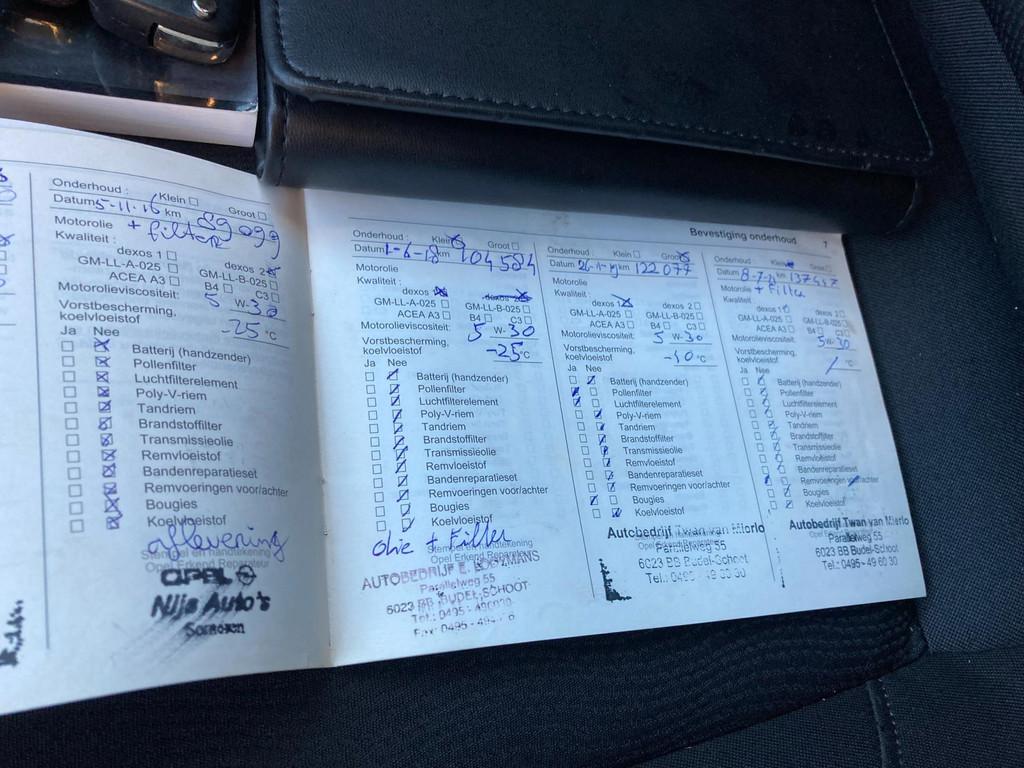 Onderhoud : Klein Groot
Datum 5-11-16 km 89099
Motorolie + filter
Kwaliteit :
dexos 1 dexos 2
GM-LL-A-025 GM-LL-B-025
ACEA A3 B4 C3
Motorolieviscositeit: 5 W-30
Vorstbescherming,
koelvloeistof -25 °C
Ja Nee
Batterij (handzender)
Pollenfilter
Luchtfilterelement
Poly-V-riem
Tandriem
Brandstoffilter
Transmissieolie
Remvloeistof
Bandenreparatieset
Remvoeringen voor/achter
Bougies
Koelvloeistof
aflevering
Stempel en handtekening
Opel Erkend Reparateur
OPEL
Nijs Auto's
Someren
Bevestiging onderhoud 7
Onderhoud : Klein Groot
Datum 1-6-18 km 104584
Motorolie
Kwaliteit :
dexos 1 dexos 2
GM-LL-A-025 GM-LL-B-025
ACEA A3 B4 C3
Motorolieviscositeit: 5 W-30
Vorstbescherming,
koelvloeistof -25 °C
Ja Nee
Batterij (handzender)
Pollenfilter
Luchtfilterelement
Poly-V-riem
Tandriem
Brandstoffilter
Transmissieolie
Remvloeistof
Bandenreparatieset
Remvoeringen voor/achter
Bougies
Koelvloeistof
Olie + Filter
Stempel en handtekening
Opel Erkend Reparateur
AUTOBEDRIJF E.
Parallelweg 55
6023 BB BUDEL-SCHOOT
Tel.: 0495 -
Fax: 0495 -
Onderhoud : Klein Groot
Datum km 122077
Motorolie
Kwaliteit :
dexos 1 dexos 2
GM-LL-A-025 GM-LL-B-025
ACEA A3 B4 C3
Motorolieviscositeit: 5 W-30
Vorstbescherming,
koelvloeistof -40 °C
Ja Nee
Batterij (handzender)
Pollenfilter
Luchtfilterelement
Poly-V-riem
Tandriem
Brandstoffilter
Transmissieolie
Remvloeistof
Bandenreparatieset
Remvoeringen voor/achter
Bougies
Koelvloeistof
Autobedrijf Twan van Mierlo
Opel Erkend Reparateur
Parallelweg 55
6023 BB Budel-Schoot
Tel.: 0495 - 49 60 30
Onderhoud : Klein Groot
Datum km
Motorolie + Filter
Kwaliteit :
dexos 1 dexos 2
GM-LL-A-025 GM-LL-B-025
ACEA A3 B4 C3
Motorolieviscositeit: 5 W-30
Vorstbescherming,
koelvloeistof / °C
Ja Nee
Batterij (handzender)
Pollenfilter
Luchtfilterelement
Poly-V-riem
Tandriem
Brandstoffilter
Transmissieolie
Remvloeistof
Bandenreparatieset
Remvoeringen voor/achter
Bougies
Koelvloeistof
Autobedrijf Twan van Mierlo
Parallelweg 55
6023 BB Budel-Schoot
Tel.: 0495 - 49 60 30